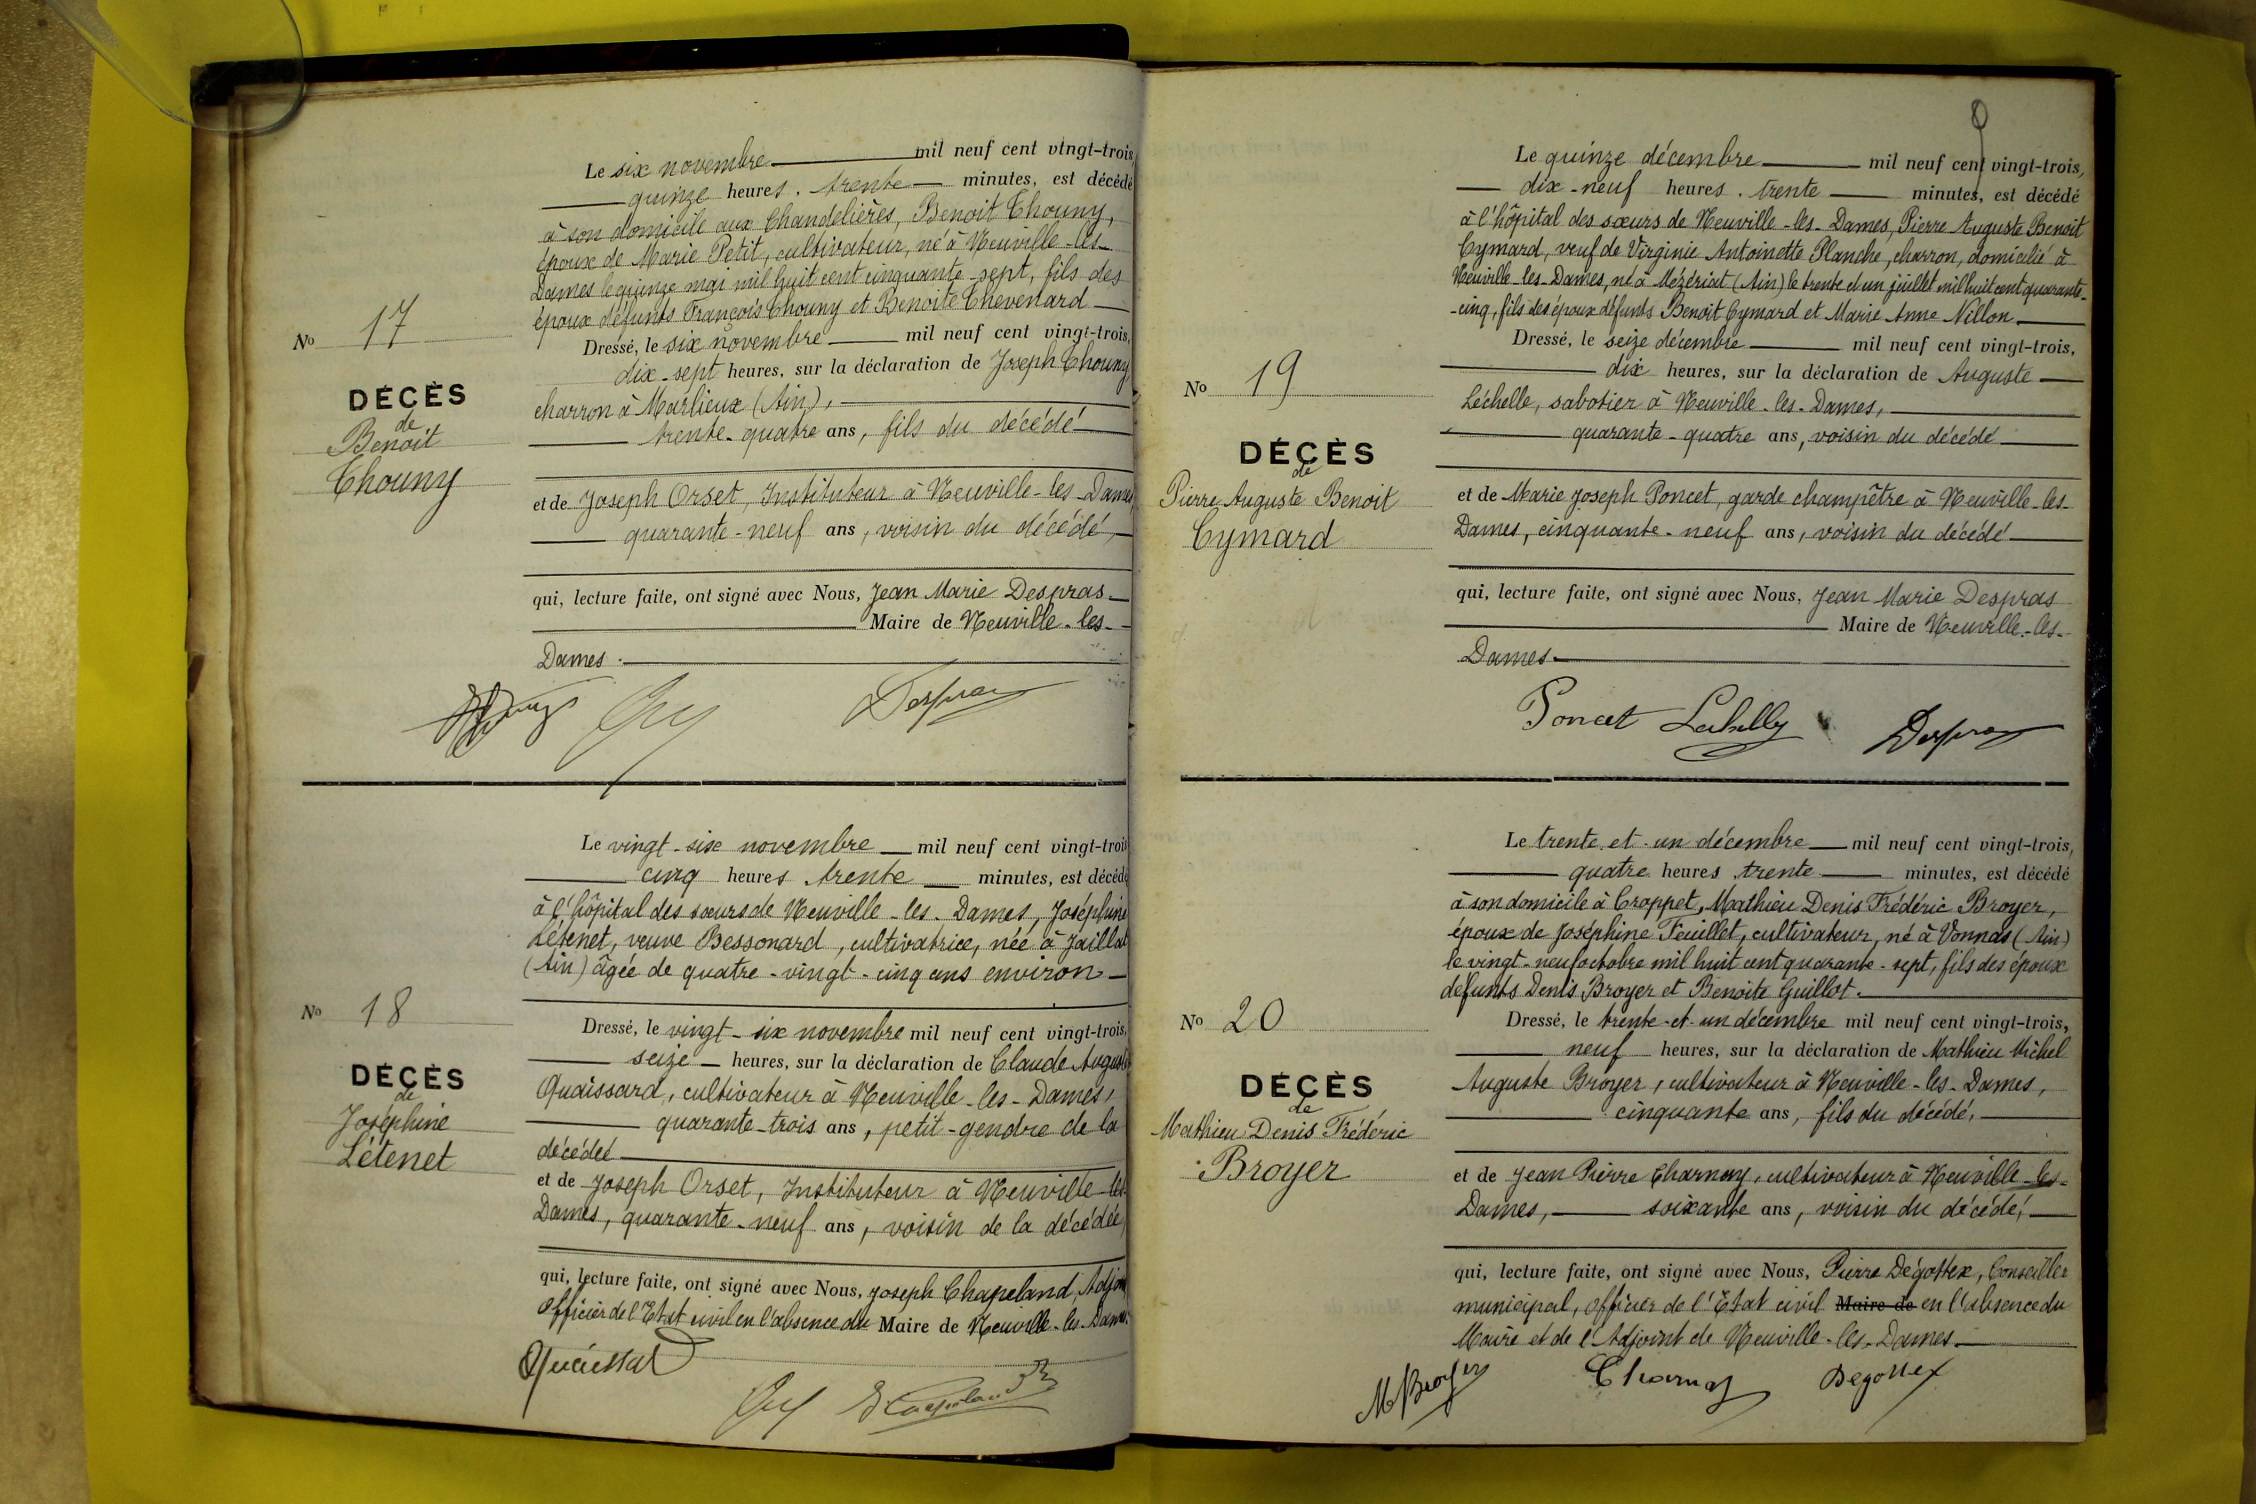 Le six novembre mil neuf cent vingt-trois,
quinze heures. trente minutes, est décédé
à son domicile aux Chandelières, Benoit Chouny,
époux de Marie Petit, cultivateur, né à Neuville-les-
Dames le quinze mai mil huit cent cinquante-sept, fils des
époux défunts François Chouny et Benoite Thevenard
Dressé, le six novembre mil neuf cent vingt-trois,
dix-sept heures, sur la déclaration de Joseph Chouny,
charron à Marlieux (Ain),
trente-quatre ans, fils du décédé
et de Joseph Orset, Instituteur à Neuville-les-Dames
quarante-neuf ans, voisin du décédé,
qui, lecture faite, ont signé avec Nous, Jean Marie Despras
Maire de Neuville-les-
Dames.
Despras
No 17
DÉCÈS
de
Benoit
Chouny
Le vingt-six novembre mil neuf cent vingt-trois
cinq heures trente minutes, est décédé
à l'hôpital des sœurs de Neuville-les-Dames, Joséphine
Létenet, veuve Bessonard, cultivatrice, née à Jaillat
(Ain) âgée de quatre-vingt-cinq ans environ
Dressé, le vingt-six novembre mil neuf cent vingt-trois,
seize heures, sur la déclaration de Claude Auguste
Quaissard, cultivateur à Neuville-les-Dames,
quarante-trois ans, petit-gendre de la
décédée
et de Joseph Orset, Instituteur à Neuville-les
Dames, quarante-neuf ans, voisin de la décédée,
qui, lecture faite, ont signé avec Nous, Joseph Chapeland, Adjoint
Officier de l'Etat civil en l'absence du Maire de Neuville-les-Dames.
No 18
DÉCÈS
de
Joséphine
Létenet
Le quinze décembre mil neuf cent vingt-trois,
dix-neuf heures. trente minutes, est décédé
à l'hôpital des sœurs de Neuville-les-Dames, Pierre Auguste Benoit
Cymard, veuf de Virginie Antoinette Planche, charron, domicilié à
Neuville-les-Dames, né à Mézériat (Ain) le trente et un juillet mil huit cent quarante-
-cinq, fils des époux défunts Benoit Cymard et Marie Anne Nillon
Dressé, le seize décembre mil neuf cent vingt-trois,
dix heures, sur la déclaration de Auguste
Léchelle, sabotier à Neuville-les-Dames,
quarante-quatre ans, voisin du décédé
et de Marie Joseph Poncet, garde champêtre à Neuville-les-
Dames, cinquante-neuf ans, voisin du décédé
qui, lecture faite, ont signé avec Nous, Jean Marie Despras
Maire de Neuville-les-
Dames
Poncet Despras
No 19
DÉCÈS
de
Pierre Auguste Benoit
Cymard
Le trente-et-un décembre mil neuf cent vingt-trois,
quatre heures trente minutes, est décédé
à son domicile à Croppet, Mathieu Denis Frédéric Broyer,
époux de Joséphine Feuillet, cultivateur, né à Vonnas (Ain)
le vingt-neuf octobre mil huit cent quarante-sept, fils des époux
défunts Denis Broyer et Benoite Guillot.
Dressé, le trente-et-un décembre mil neuf cent vingt-trois,
neuf heures, sur la déclaration de Mathieu Michel
Auguste Broyer, cultivateur à Neuville-les-Dames,
cinquante ans, fils du décédé,
et de Jean Pierre Charnay, cultivateur à Neuville-les-
Dames, soixante ans, voisin du décédé,
qui, lecture faite, ont signé avec Nous, Pierre Dégottex, Conseiller
municipal, officier de l'Etat civil Maire de en l'absence du
Maire et de l'Adjoint de Neuville-les-Dames
M Broyer Charnay Degottex
No 20
DÉCÈS
de
Mathieu Denis Frédéric
Broyer